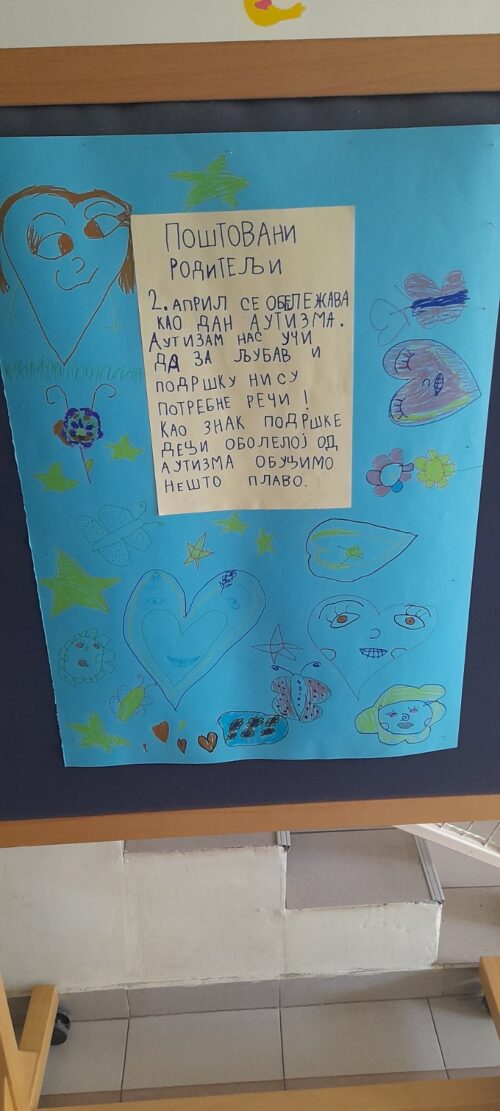 ПОШТОВАНИ
РОДИТЕЉИ
2. АПРИЛ СЕ ОБЕЛЕЖАВА
КАО ДАН АУТИЗМА.
АУТИЗАМ НАС УЧИ
ДА ЗА ЉУБАВ И
ПОДРШКУ НИСУ
ПОТРЕБНЕ РЕЧИ!
КАО ЗНАК ПОДРШКЕ
ДЕЦИ ОБОЛЕЛОЈ ОД
АУТИЗМА ОБУЦИМО
НЕШТО ПЛАВО.